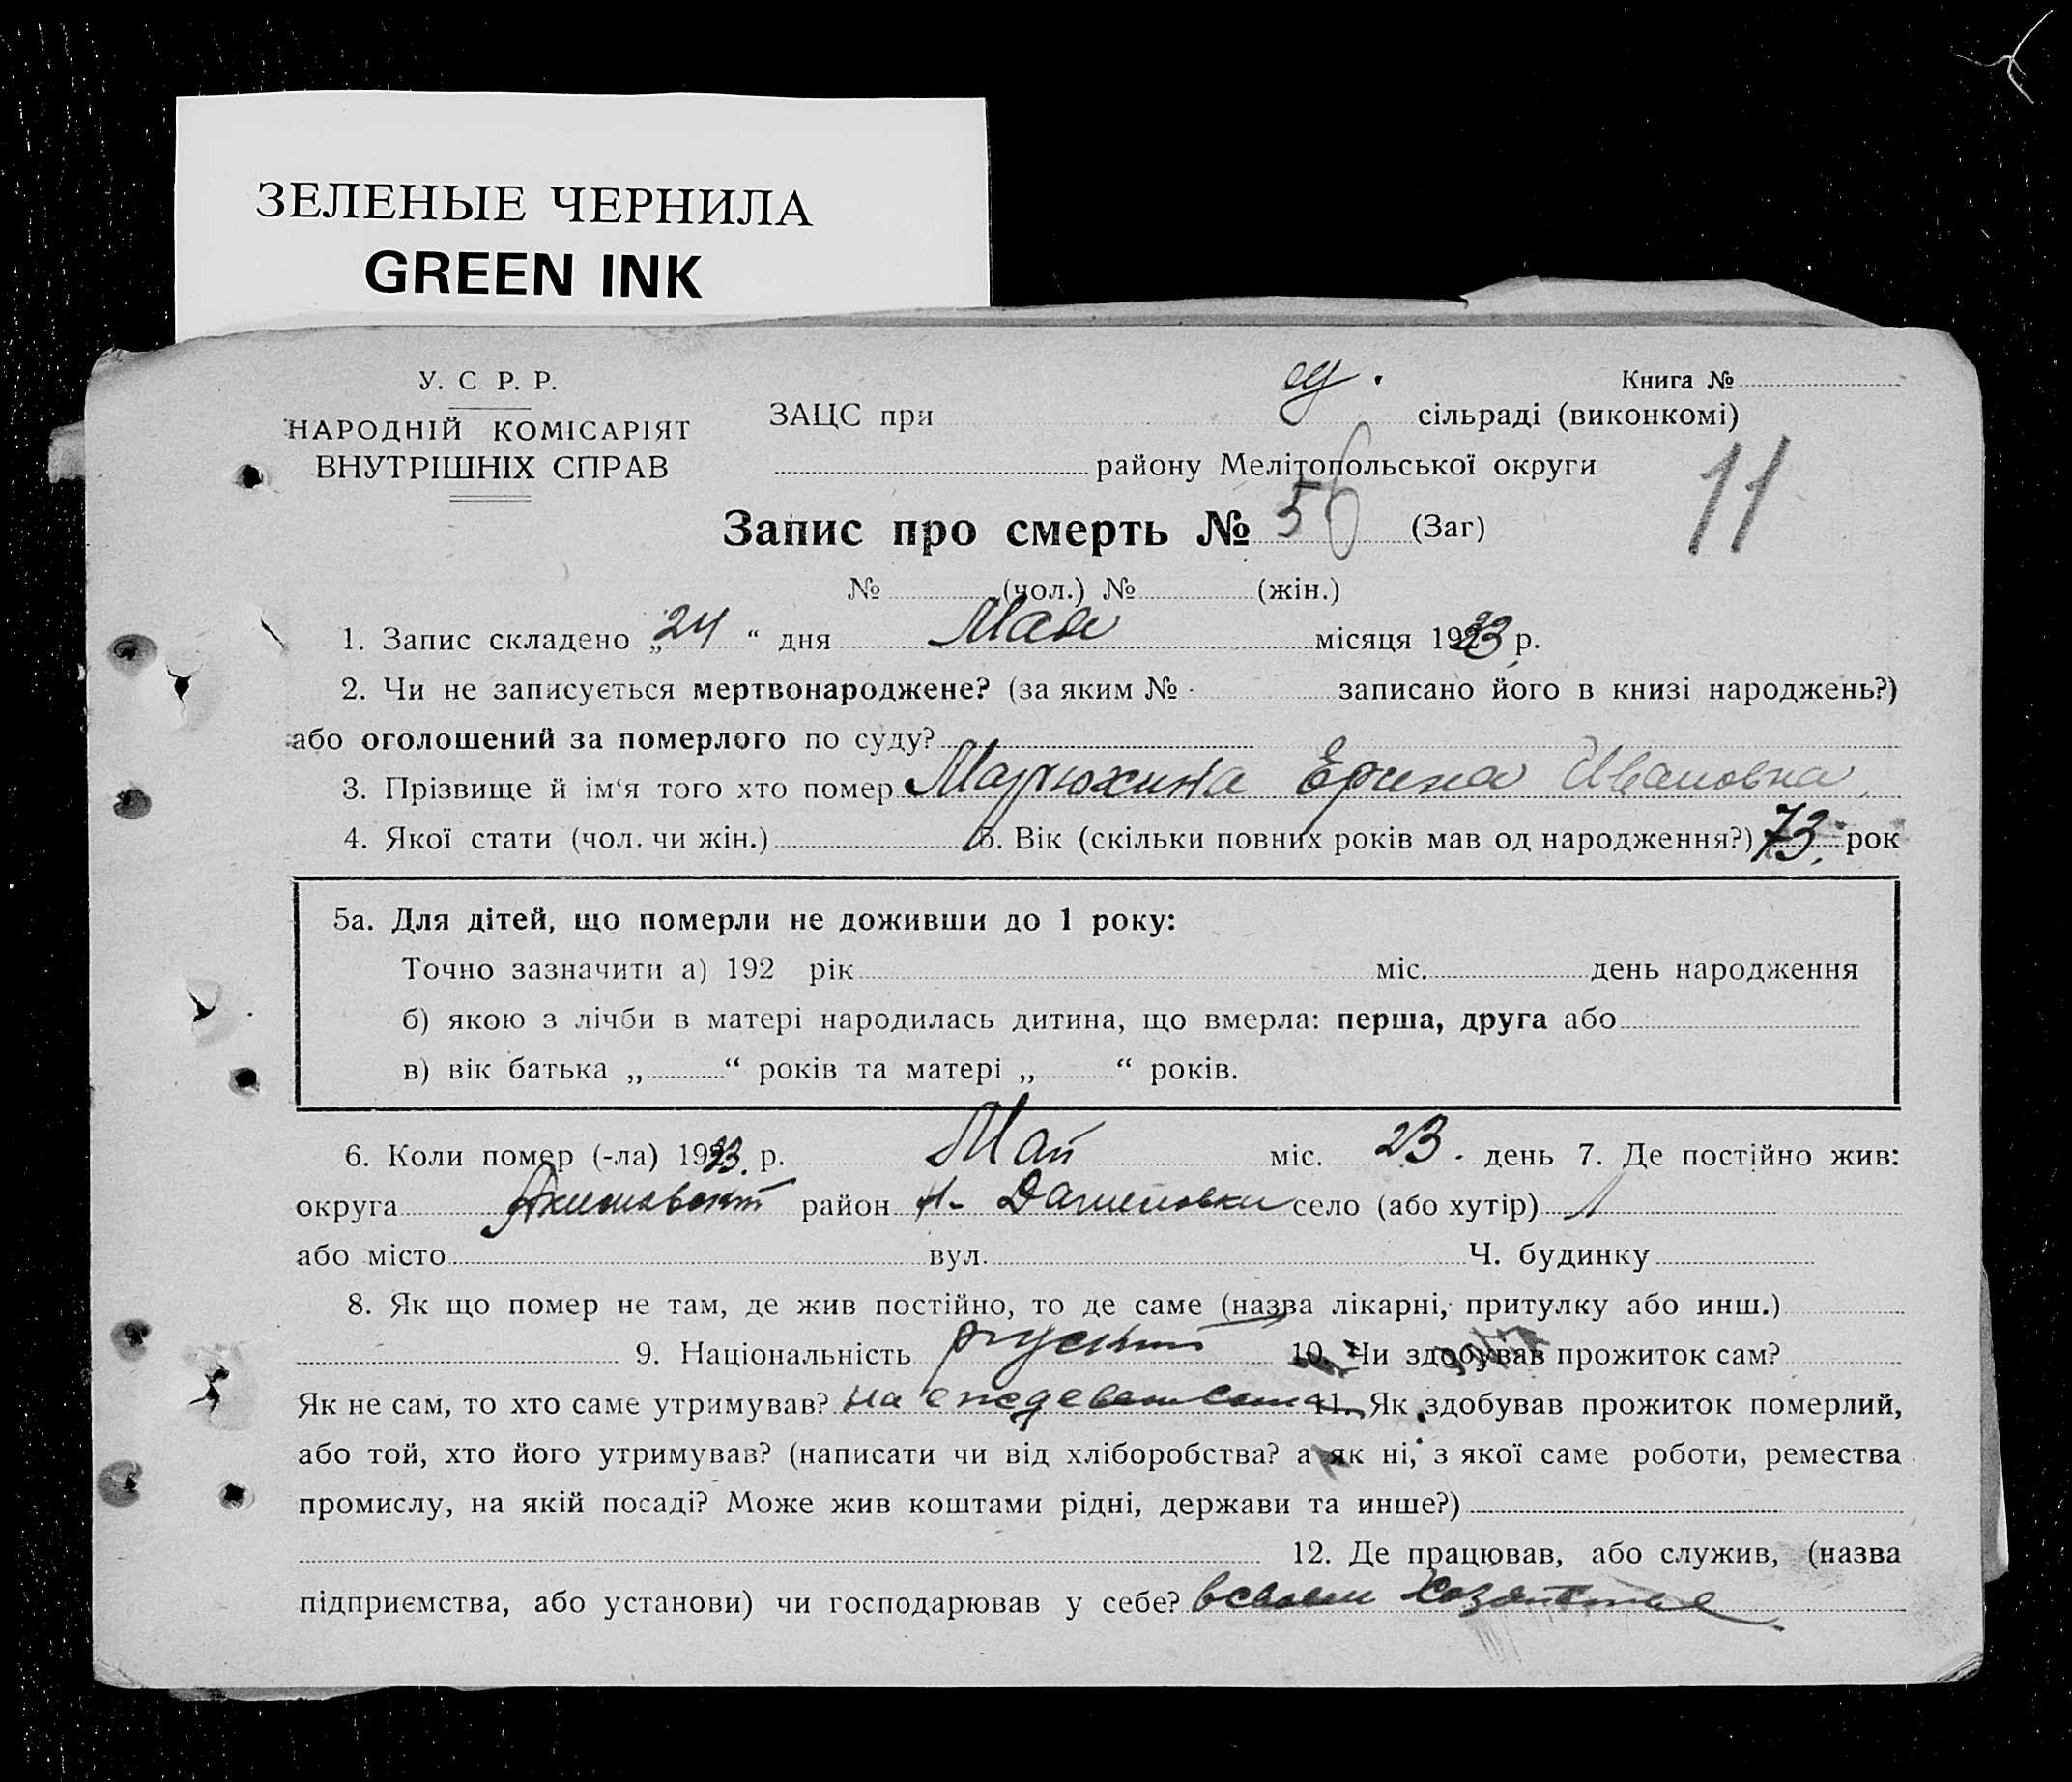 ЗЕЛЕНЫЕ ЧЕРНИЛА
GREEN INK
У. С Р. Р.
НАРОДНІЙ КОМІСАРІЯТ
ВНУТРІШНІХ СПРАВ
Книга №
ЗАЦС при сільраді (виконкомі)
району Мелітопольської округи
11
Запис про смерть № 56 (Заг)
№ (чол.) № (жін.)
1. Запис складено „24“ дня Мая місяця 1933 р.
2. Чи не записується мертвонароджене? (за яким № записано його в книзі народжень?)
або оголошений за померлого по суду?
3. Прізвище й ім‘я того хто помер Ерина Ивановна
4. Якої стати (чол. чи жін.) 5. Вік (скільки повних років мав од народження?) 73 рок
5а. Для дітей, що померли не доживши до 1 року:
Точно зазначити а) 192 рік міс. день народження
б) якою з лічби в матері народилась дитина, що вмерла: перша, друга або
в) вік батька „ “ років та матері „ “ років.
6. Коли помер (-ла) 1933 р. Май міс. 23. день 7. Де постійно жив:
округа район село (або хутір)
або місто вул. Ч. будинку
8. Як що помер не там, де жив постійно, то де саме (назва лікарні, притулку або инш.)
9. Національність 10. Чи здобував прожиток сам?
Як не сам, то хто саме утримував? на 11. Як здобував прожиток померлий,
або той, хто його утримував? (написати чи від хліборобства? а як ні, з якої саме роботи, ремества
промислу, на якій посаді? Може жив коштами рідні, держави та инше?)
12. Де працював, або служив, (назва
підприємства, або установи) чи господарював у себе? в своем